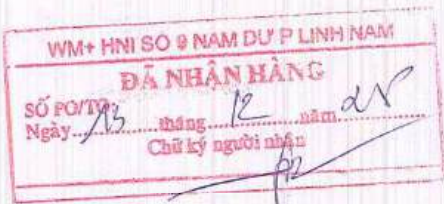 WM+ HNI SO 9 NAM DƯ P LINH NAM
ĐÃ NHẬN HÀNG
SỐ PO/TO:
Ngày 13 tháng 12 năm
Chữ ký người nhận